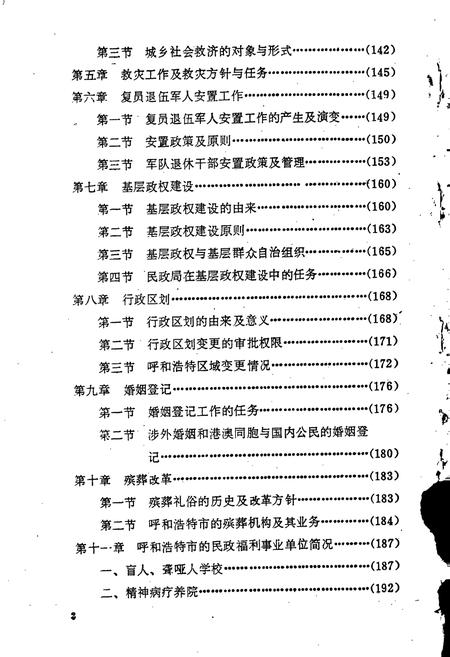 第三节 城乡社会救济的对象与形式………………(142)
第五章 救灾工作及救灾方针与任务………………(145)
第六章 复员退伍军人安置工作………………(149)
第一节 复员退伍军人安置工作的产生及演变……(149)
第二节 安置政策及原则………………(150)
第三节 军队退休干部安置政策及管理………………(153)
第七章 基层政权建设………………(160)
第一节 基层政权建设的由来………………(160)
第二节 基层政权建设原则………………(163)
第三节 基层政权与基层群众自治组织………………(165)
第四节 民政局在基层政权建设中的任务…………(166)
第八章 行政区划………………(168)
第一节 行政区划的由来及意义………………(168)
第二节 行政区划变更的审批权限………………(171)
第三节 呼和浩特区域变更情况………………(172)
第九章 婚姻登记………………(176)
第一节 婚姻登记工作的任务………………(176)
第二节 涉外婚姻和港澳同胞与国内公民的婚姻登
记………………(180)
第十章 殡葬改革………………(183)
第一节 殡葬礼俗的历史及改革方针………………(183)
第二节 呼和浩特市的殡葬机构及其业务…………(184)
第十一章 呼和浩特市的民政福利事业单位简况………(187)
一、盲人、聋哑人学校………………(187)
二、精神病疗养院………………(192)